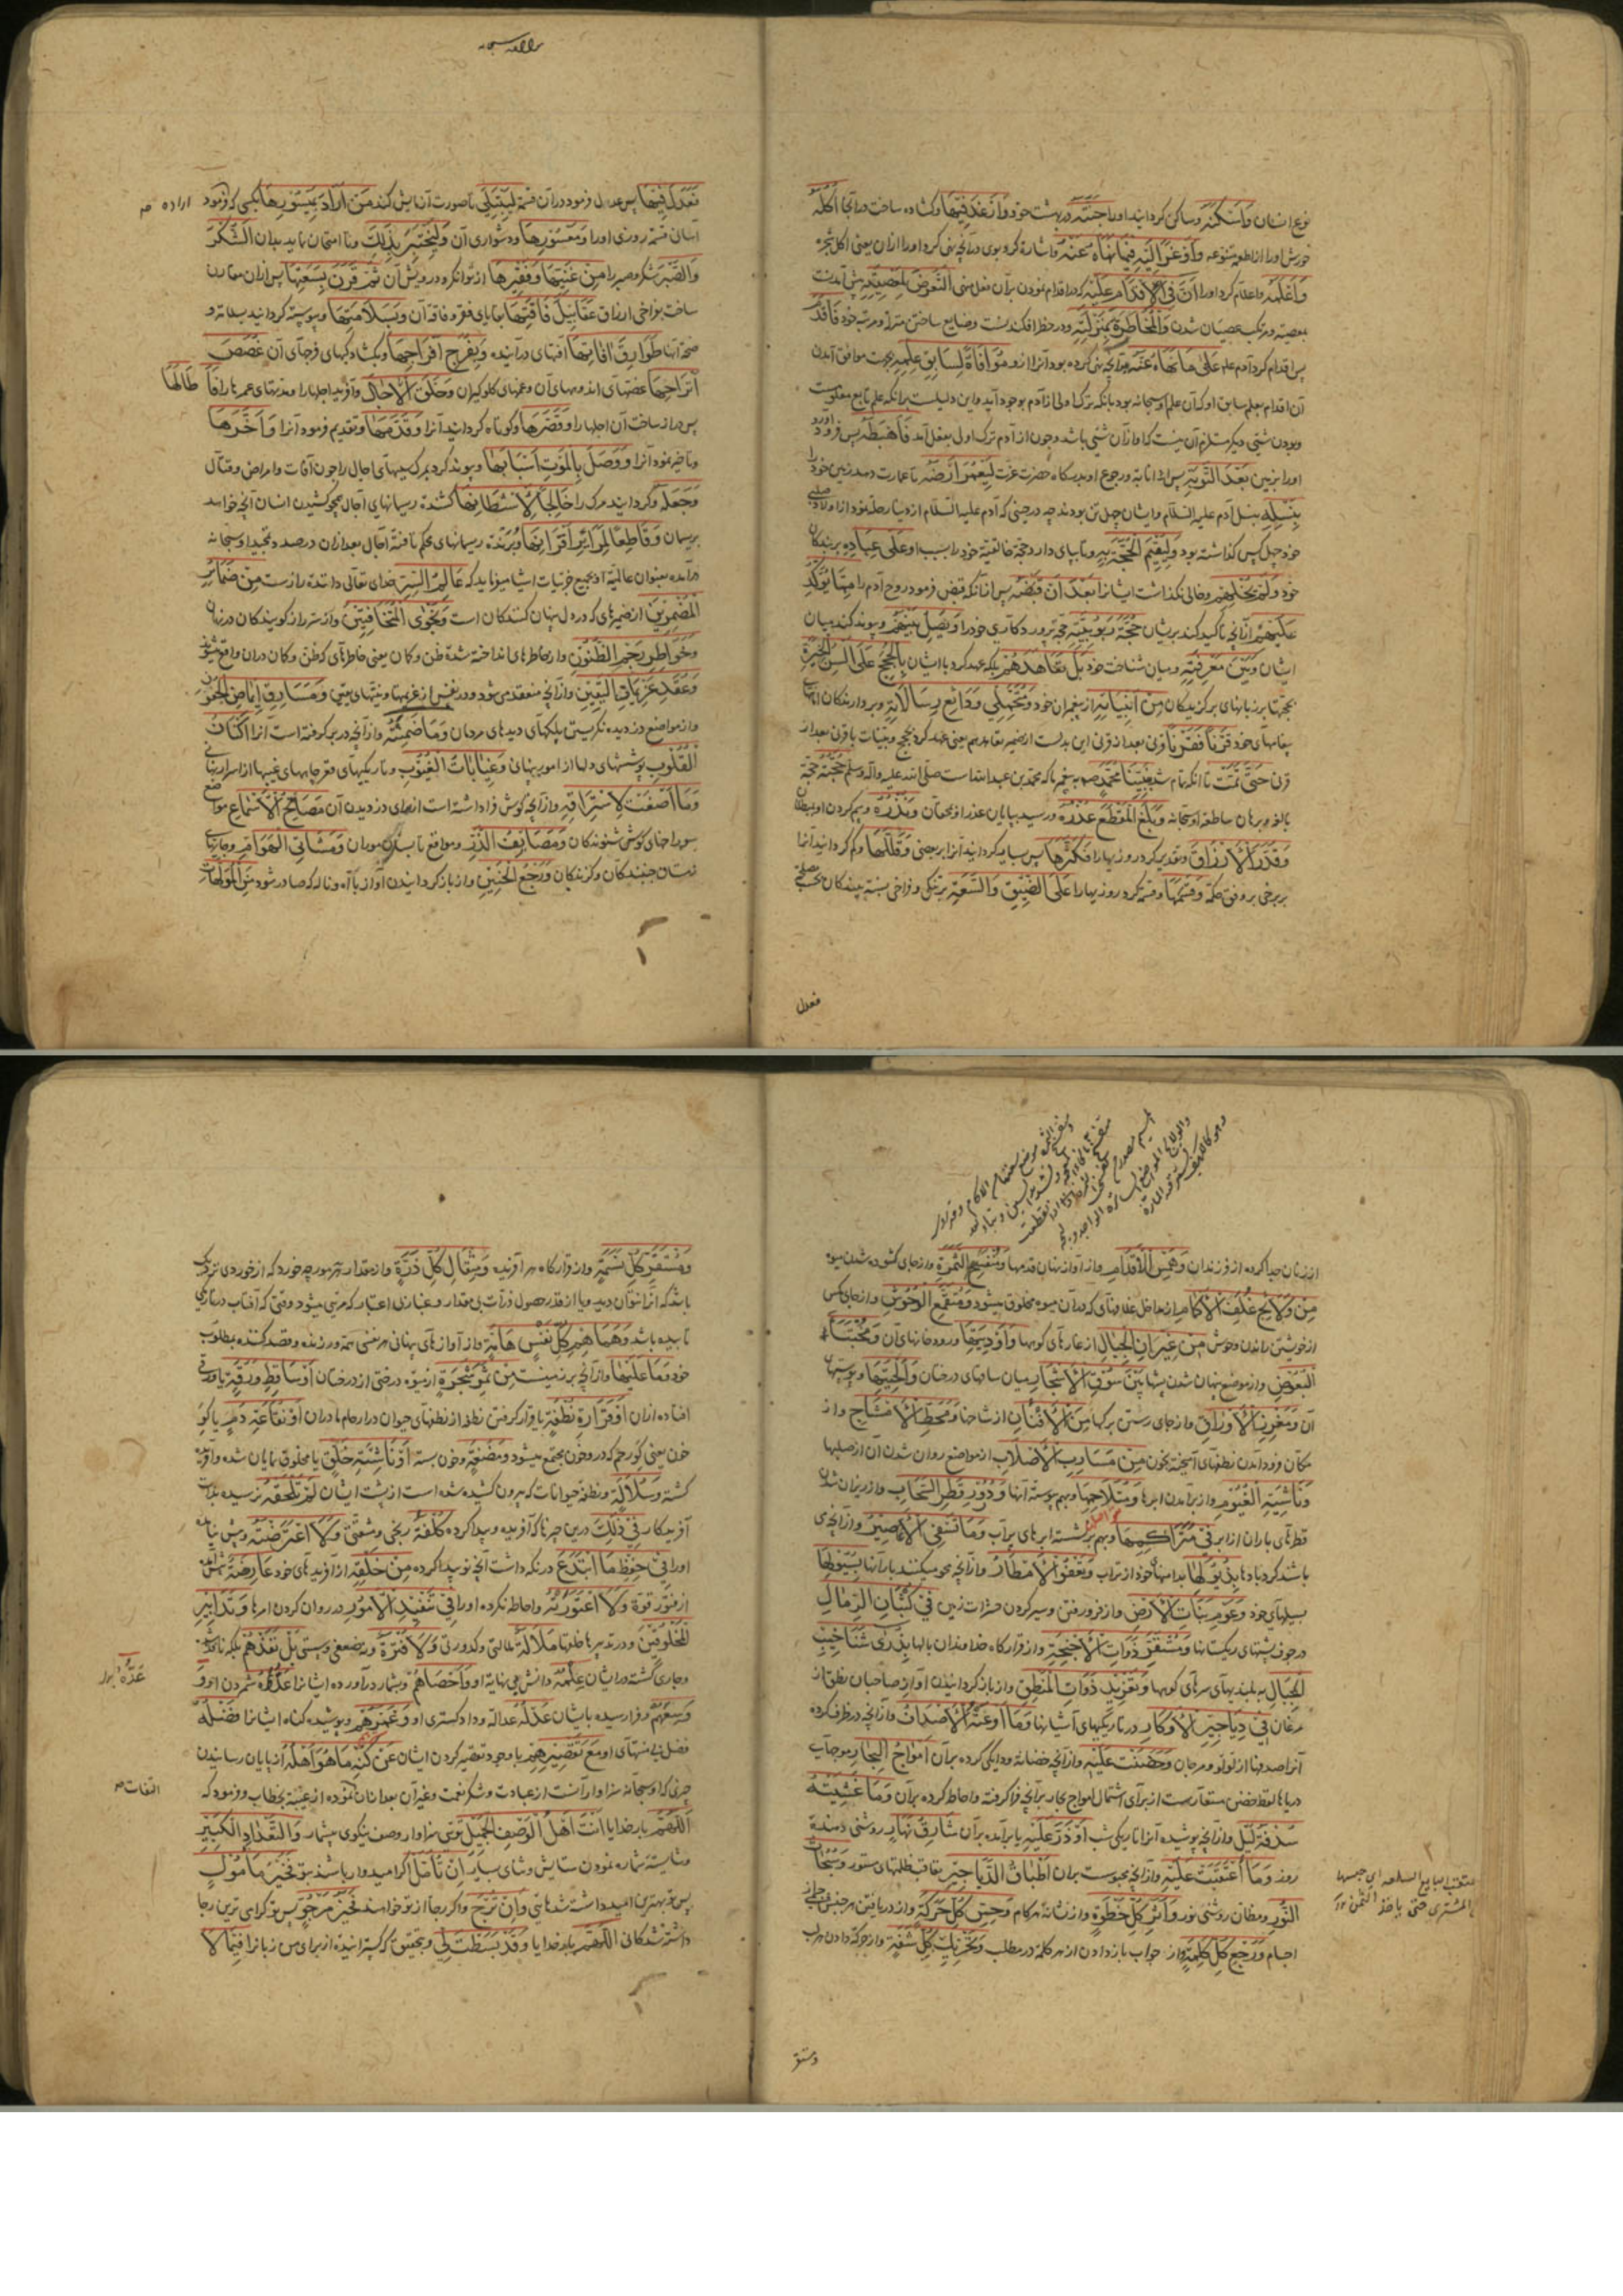 نوع انسان وَاَسْكَنَهُ وساکن گردانید او را جَنَّتَهُ در بهشت خود وَاَرْغَدَ فِيْهَا وگشاده ساخت در آنجا اُكُلَهُ
خورش او را از اطعمه متنوعه وَاَوْعَزَ اِلَيْهِ فِيْمَا نَهَاهُ عَنْهُ واشاره کرد بوی در آنچه نهی کرد او را از آن یعنی اکل شجره
وَاَعْلَمَهُ واعلام کرد او را اَنَّ فِي الْاِقْدَامِ عَلَيْهِ که در اقدام نمودن بر آن فعل منهی التَّعَرُّضَ لِمَعْصِيَتِهِ پیش آمدنست
بمعصیة ومرتکب عصیان شدن وَالْمُخَاطَرَةَ بِمَنْزِلَتِهِ ودر خطر افکندنست وضایع ساختن منزله ومرتبه خود فَاَقْدَمَ
پس اقدام کرد آدم علم عَلٰى مَا نَهَاهُ عَنْهُ بر آنچه نهی کرده بود آنرا از و مُوَافَاةً لِسَابِقِ عِلْمِهِ بجهت موافق آمدن
آن اقدام بعلم سابق او که آن علم او سبحانه بود بانکه ترک اولی از آدم بوجود آید واین دلیلست بر انکه علم تابع معلومست
وبودن شئی دیگر مستلزم آن نیست که او از آن شئی باشد وچون از آدم ترک اولی بفعل آمد فَاَهْبَطَهُ پس فرود آورد
او را بزمین بَعْدَ التَّوْبَةِ پس از انابه ورجوع او بدرگاه حضرت عزت لِيَعْمُرَ اَرْضَهُ تا عمارت دهد زمین خود را
بِنَسْلِهِ بنسل آدم علیه السلام وایشان چهل تن بودند چه در حینی که آدم علیه السلام از دنیا رحلت نمود از اولاد صلبی
خود چهل کس گذاشته بود وَلِيُقِيْمَ الْحُجَّةَ بِهِ وتا بپای دارد حجة خالقیة خود را بسبب او عَلٰى عِبَادِهِ بر بندگان
خود وَلَمْ يُخْلِهِمْ وخالی نگذاشت ایشانرا بَعْدَ اَنْ قَبَضَهُ پس از آنکه قبض فرمود روح آدم را مِمَّا يُؤَكِّدُ
عَلَيْهِمْ از آنچه تأکید کند بر یشان حُجَّةَ رُبُوْبِيَّتِهِ حجة پروردگاری خود را وَيَصِلُ بَيْنَهُمْ وپیوند کند میان
ایشان وَبَيْنَ مَعْرِفَتِهِ ومیان شناخت خود بَلْ تَعَاهَدَهُمْ بلکه عهد کرد با ایشان بِالْحُجَجِ عَلٰى اَلْسُنِ الْخِيَرَةِ
بحجتها بر زبانهای برگزیدگان مِنْ اَنْبِيَائِهِ از پیغمبران خود وَمُتَحَمِّلِي وَدَائِعِ رِسَالَاتِهِ وبردارندگان امانتهای
پیغامهای خود قَرْنًا فَقَرْنًا قرنی بعد از قرنی
قرن حَتّٰى تَمَّتْ تا آنکه تمام شد بِنَبِيِّنَا مُحَمَّدٍ صم به پیغمبر ما که محمد بن عبد الله است صلی الله علیه وآله وسلم حُجَّتُهُ حجة
بالغه وبرهان ساطعه او سبحانه وَبَلَغَ الْمَقْطَعَ عُذْرُهُ ورسید بپایان عذر او بخلقان وَنُذُرُهُ وبیم کردن او
وَقَدَّرَ الْاَرْزَاقَ وتقدیر کرد روزیها را فَكَثَّرَهَا پس بسیار گردانید آنرا بر بعضی وَقَلَّلَهَا وکم گردانید آنها
بر برخی بر وفق حکمة وَقَسَّمَهَا وقسمة کرد روزیها را عَلَى الضِّيْقِ وَالسَّعَةِ بر تنگی وفراخی
فعدل
فَعَدَلَ فِيْهَا پس عدل فرمود در آن قسمة لِيَبْتَلِيَ تا بصورت آزمایش کند مَنْ اَرَادَ بِمَيْسُوْرِهَا کسی که فرمود اراده صم
آسان قسمة روزی او را وَمَعْسُوْرِهَا ودشواری آن وَلِيَخْتَبِرَ بِذٰلِكَ وتا امتحان نماید بدان الشُّكْرَ
وَالصَّبْرَ شکر وصبر را مِنْ غَنِيِّهَا وَفَقِيْرِهَا از توانگر ودرویش آن ثُمَّ قَرَنَ بِسَعَتِهَا پس از آن مقارن
ساخت بفراخی ارزاق عَقَابِيْلَ فَاقَتِهَا بقایای فقر وفاقه آن وَبِسَلَامَتِهَا وپیوسته گردانید بسلامة و
صحة آنها طَوَارِقَ اٰفَاتِهَا آفتهای درآینده وَبِفُرَجِ اَفْرَاحِهَا وبگشادگیهای فرحهای آن غُصَصَ
اَتْرَاحِهَا غصّهای اندوههای آن وغمهای گلوگیران وَخَلَقَ الْاٰجَالَ وآفرید اجلها را ومدتهای عمرها را فَاَطَالَهَا
پس دراز ساخت آن اجلها را وَقَصَّرَهَا وکوتاه گردانید آنرا وَقَدَّمَهَا وتقدیم فرمود آنرا وَاَخَّرَهَا
وتأخیر نمود آنرا وَوَصَلَ بِالْمَوْتِ اَسْبَابَهَا وپیوند کرد بمرگ سببهای آجال را چون آفات وامراض وقتال
وَجَعَلَهُ وگردانید مرگ را خَالِجًا لِاَشْطَانِهَا کشنده ریسمانهای آجال همچو کشیدن انسان آنچه خواهد
بریسمان وَقَاطِعًا لِمَرَائِرِ اَقْرَانِهَا وبرنده ریسمانهای محکم تافتهٔ آجال بعد از آن در صدد تمجید او سبحانه
درآمده بعنوان عالمیّة او بجمیع جزئیات اشیا میفرماید که عَالِمُ السِّرِّ خدای تعالی داننده رازست مِنْ ضَمَائِرِ
الْمُضْمِرِيْنَ از ضمیرهای که در دل پنهان کنندگان است وَنَجْوَى الْمُتَخَافِتِيْنَ واز سرّ رازگویندگان در نهان
وَخَوَاطِرِ رَجْمِ الظُّنُوْنِ واز خاطرهای انداخته شده ظن وگمان یعنی خاطرهای که ظن وگمان در آن واقع میشود
وَعُقَدِ عَزِيْمَاتِ الْيَقِيْنِ واز آنچه منعقد می شود در نفس از عزیمتها ونیّتهای یقینی وَمَسَارِقِ اِيْمَاضِ الْجُفُوْنِ
واز مواضع دزدیده نگریستن پلکهای دیدهای مردمان وَمَا ضَمِنَتْهُ واز آنچه در بر گرفته است آنرا اَكْنَانُ
الْقُلُوْبِ پوششهای دلها از امور پنهانی وَغَيَابَاتُ الْغُيُوْبِ وتاریکیهای قعر چاههای غیبها از اسرار نهانی
وَمَا اَصْغَتْ لِاسْتِرَاقِهِ واز آنچه گوش فرا داشته است از برای دزدیدن آن مَصَائِخُ الْاَسْمَاعِ مواضع
سوراخهای گوش شنوندگان وَمَصَائِفُ الذَّرِّ ومواقع تابستان موران وَمَشَاتِي الْهَوَامِّ وجایهای
زمستان جنبندگان وگزندگان وَرَجْعِ الْحَنِيْنِ واز بازگردانیدن آواز با آه وناله که صادر شود مِنَ الْمُوْلَهَاتِ
از زنان جدا کرده از فرزندان وَهَمْسِ الْاَقْدَامِ واز آواز نهان قدمها وَمُنْفَسَحِ الثَّمَرَةِ واز جای گشوده شدن میوه
مِنْ وَلَائِجِ غُلُفِ الْاَكْمَامِ از مداخل غلافهای که در آن میوه مخلوق میشود وَمُنْقَمَعِ الْوُحُوْشِ واز جای
از خویشتن راندن وحوش مِنْ غِيْرَانِ الْجِبَالِ از غارهای کوهها وَاَوْدِيَتِهَا ورودخانهای آن وَمُخْتَبَاءِ
الْبَعُوْضِ واز موضع پنهان شدن پشها بَيْنَ سُوْقِ الْاَشْجَارِ میان ساقهای درختان وَاَلْحِيَتِهَا وپوستهای
آن وَمَغْرِزِ الْاَوْرَاقِ واز جای رستن برگها مِنَ الْاَفْنَانِ از شاخها وَمَحَطِّ الْاَمْشَاجِ واز
مکان فرود آمدن نطفهای آمیخته بخون مِنْ مَسَارِبِ الْاَصْلَابِ از مواضع روان شدن آن از صلبها
وَنَاشِئَةِ الْغُيُوْمِ واز برآمدن ابرها وَمُتَلَاحِمِهَا وبهم پیوسته آنها وَدُرُوْرِ قَطْرِ السَّحَابِ واز ریزان شدن
قطرهای باران از ابر فِي مُتَرَاكِمِهَا وبهم برنشسته ابرهای پر آب وَمَا تَسْفِي الْاَعَاصِيْرُ واز آنچه می
باشد گردبادها بِذُيُوْلِهَا بدامنهای خود از تراب وَتَعْفُو الْاَمْطَارُ واز آنچه محو میکنند بارانها بِسُيُوْلِهَا
بسیلهای خود وَعَوْمِ بَنَاتِ الْاَرْضِ واز فرو رفتن وسیر کردن حشرات زمین فِي كُثْبَانِ الرِّمَالِ
در جوف پشتهای ریگستانها وَمُسْتَقَرِّ ذَوَاتِ الْاَجْنِحَةِ واز قرارگاه خداوندان بالها بِذُرٰى شَنَاخِيْبِ
الْجِبَالِ به بلندیهای سرهای کوهها وَتَغْرِيْدِ ذَوَاتِ الْمَنْطِقِ واز بازگردانیدن آواز صاحبان نطق از
مرغان فِي دَيَاجِيْرِ الْاَوْكَارِ در تاریکیهای آشیانها وَمَا اَوْعَتْهُ الْاَصْدَافُ واز آنچه در ظرف کرده
آنرا صدفها از لؤلؤ ومرجان وَحَضَنَتْ عَلَيْهِ واز آنچه حضانة ودایگی کرده بر آن اَمْوَاجُ الْبِحَارِ موجهای
دریاها لفظ حضن مستعار است از برای اشتمال امواج بحار بر آنچه فرا گرفته واحاطه کرده بر آن وَمَا غَشِيَتْهُ
سُدْفَةُ لَيْلٍ واز آنچه پوشیده آنرا تاریکی شب اَوْ ذَرَّ عَلَيْهِ یا برآمده بر آن شَارِقُ نَهَارٍ روشنی دهنده
روز وَمَا اعْتَقَبَتْ عَلَيْهِ واز آنچه محبوس است بر آن اَطْبَاقُ الدَّيَاجِيْرِ طبقهای ستور وَسُبُحَاتُ
النُّوْرِ ومظان روشنی نور وَاَثَرِ كُلِّ خَطْوَةٍ واز نشانه هر گام وَحِسِّ كُلِّ حَرَكَةٍ واز دریافتن هر جنبش
اجسام وَرَجْعِ كُلِّ كَلِمَةٍ واز جواب باز دادن از هر کلمه در مطلب وَتَحْرِيْكِ كُلِّ شَفَةٍ واز حرکة دادن هر لب
اعتقب البایع السلعه ای حبسها
عن المشتری حتی یاخذ الثمن
ومستقر
وَمُسْتَقَرِّ كُلِّ نَسَمَةٍ واز قرارگاه هر آفریده وَمِثْقَالِ كُلِّ ذَرَّةٍ واز مقدار هر مورچه خورد که از خوردی نزدیک
باشد که آنرا نتوان دید ویا از قدر حصول ذرات بی مقدار وغبار بی اعتبار که مرئی میشود وقتی که آفتاب در تاریکی
تابیده باشد وَهَمَاهِمِ كُلِّ نَفْسٍ هَامَّةٍ واز آوازهای پنهانی هر نفسی همة ورزنده وقصد کننده بمطلوب
خود وَمَا عَلَيْهَا واز آنچه بر زمینست مِنْ ثَمَرِ شَجَرَةٍ از میوه درختی از درختان اَوْ سَاقِطِ وَرَقَةٍ یا ورقی
افتاده از آن اَوْ قَرَارَةِ نُطْفَةٍ یا قرار گرفتن نطفه از نطفهای حیوان در ارحام مادران اَوْ نُقَاعَةِ دَمٍ یا گوِ
خون یعنی گو رحم که در و خون مجتمع میشود وَمُضْغَةٍ وخون بسته اَوْ نَاشِئَةِ خَلْقٍ یا مخلوق نمایان شده وآفریده
گشته وَسُلَالَةٍ ونطفه حیوانات که بیرون کشیده شده است از پشت ایشان لَمْ تَلْحَقْهُ نرسیده بذات
آفریدکار فِي ذٰلِكَ درین چیزها که آفریده وپیدا کرده كُلْفَةٌ رنجی ومشقتی وَلَا اعْتَرَضَتْهُ وپیش نیامده
او را فِي حِفْظِ مَا ابْتَدَعَ در نگه داشت آنچه نو پیدا کرده مِنْ خَلْقِهِ از آفریدهای خود عَارِضَةٌ
از فتور قوة وَلَا اعْتَوَرَتْهُ واحاطه نکرده او را فِي تَنْفِيْذِ الْاُمُوْرِ در روان کردن امرها وَتَدَابِيْرِ
الْمَخْلُوْقِيْنَ ودر تدبیرها خلقها مَلَالَةٌ ملالتی وکدورتی وَلَا فَتْرَةٌ ونه ضعفی وسستی بَلْ نَفَذَهُمْ بلکه نافذ شده
وجاری گشته در ایشان عِلْمُهُ دانش بی نهایة او وَاَحْصَاهُمْ وبشمار درآورده ایشانرا عَدُّهُ شمردن او وَ
وَسِعَهُمْ وفرا رسیده بایشان عَدْلُهُ عدالة ودادگستری او وَغَمَرَهُمْ وپوشیده گناه ایشانرا فَضْلُهُ
فضل بی منتهای او مَعَ تَقْصِيْرِهِمْ با وجود تقصیر کردن ایشان عَنْ كُنْهِ مَا هُوَ اَهْلُهُ از پایان رسانیدن
چیزی که او سبحانه سزاوار آنست از عبادت وشکر نعمت وغیر آن بعد از آن نموده از غیبة بخطاب وفرمود که
التفات صم
اَللّٰهُمَّ بار خدایا اَنْتَ اَهْلُ الْوَصْفِ الْجَمِيْلِ توئی سزاوار وصف نیکوی بیشمار وَالتَّعْدَادِ الْكَثِيْرِ
وشایسته شماره نمودن ستایش وثنای بسیار اِنْ تُؤَمَّلْ اگر امیدوار باشند بتو فَخَيْرُ مَأْمُوْلٍ
پس تو بهترین امید داشته شدهائی وَاِنْ تُرْجَ واگر رجا از تو خواهند فَخَيْرُ مَرْجُوٍّ پس تو گرامی ترین رجا
داشته شدگانی اَللّٰهُمَّ بار خدایا وَقَدْ بَسَطْتَ لِي وبتحقیق که گسترانیده از برای من زبانرا فِيْمَا لَا